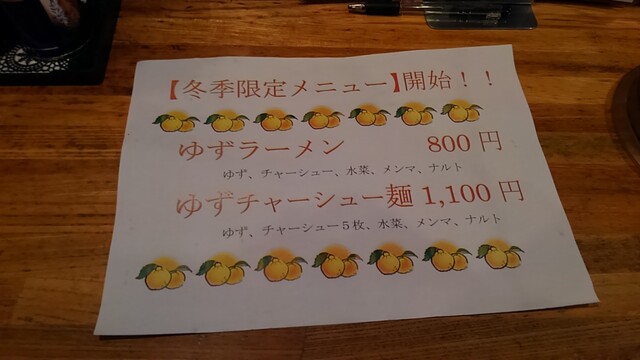 【冬季限定メニュー】開始！！
ゆずラーメン 800 円
ゆず、チャーシュー、水菜、メンマ、ナルト
ゆずチャーシュー麺 1,100 円
ゆず、チャーシュー５枚、水菜、メンマ、ナルト